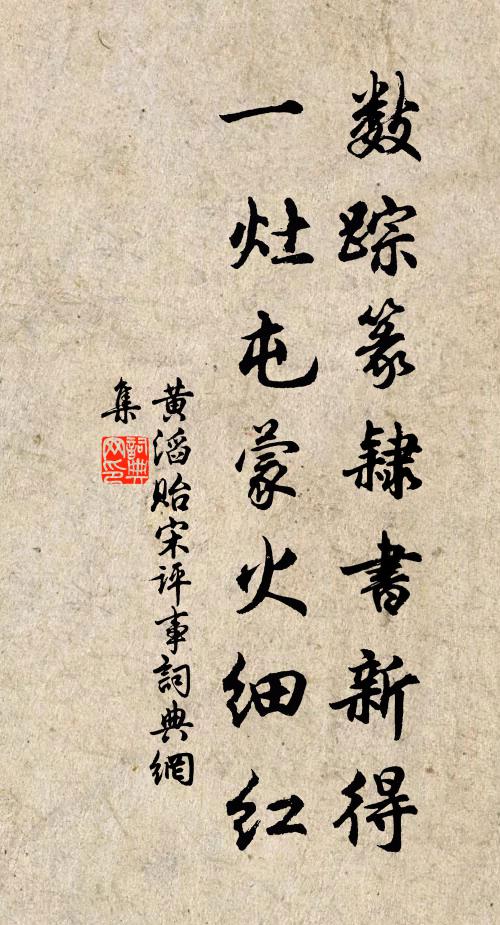 数踪篆隸書新得
一灶屯蒙火细红
黄滔贻宋评事詞典網
集
詞典
网印